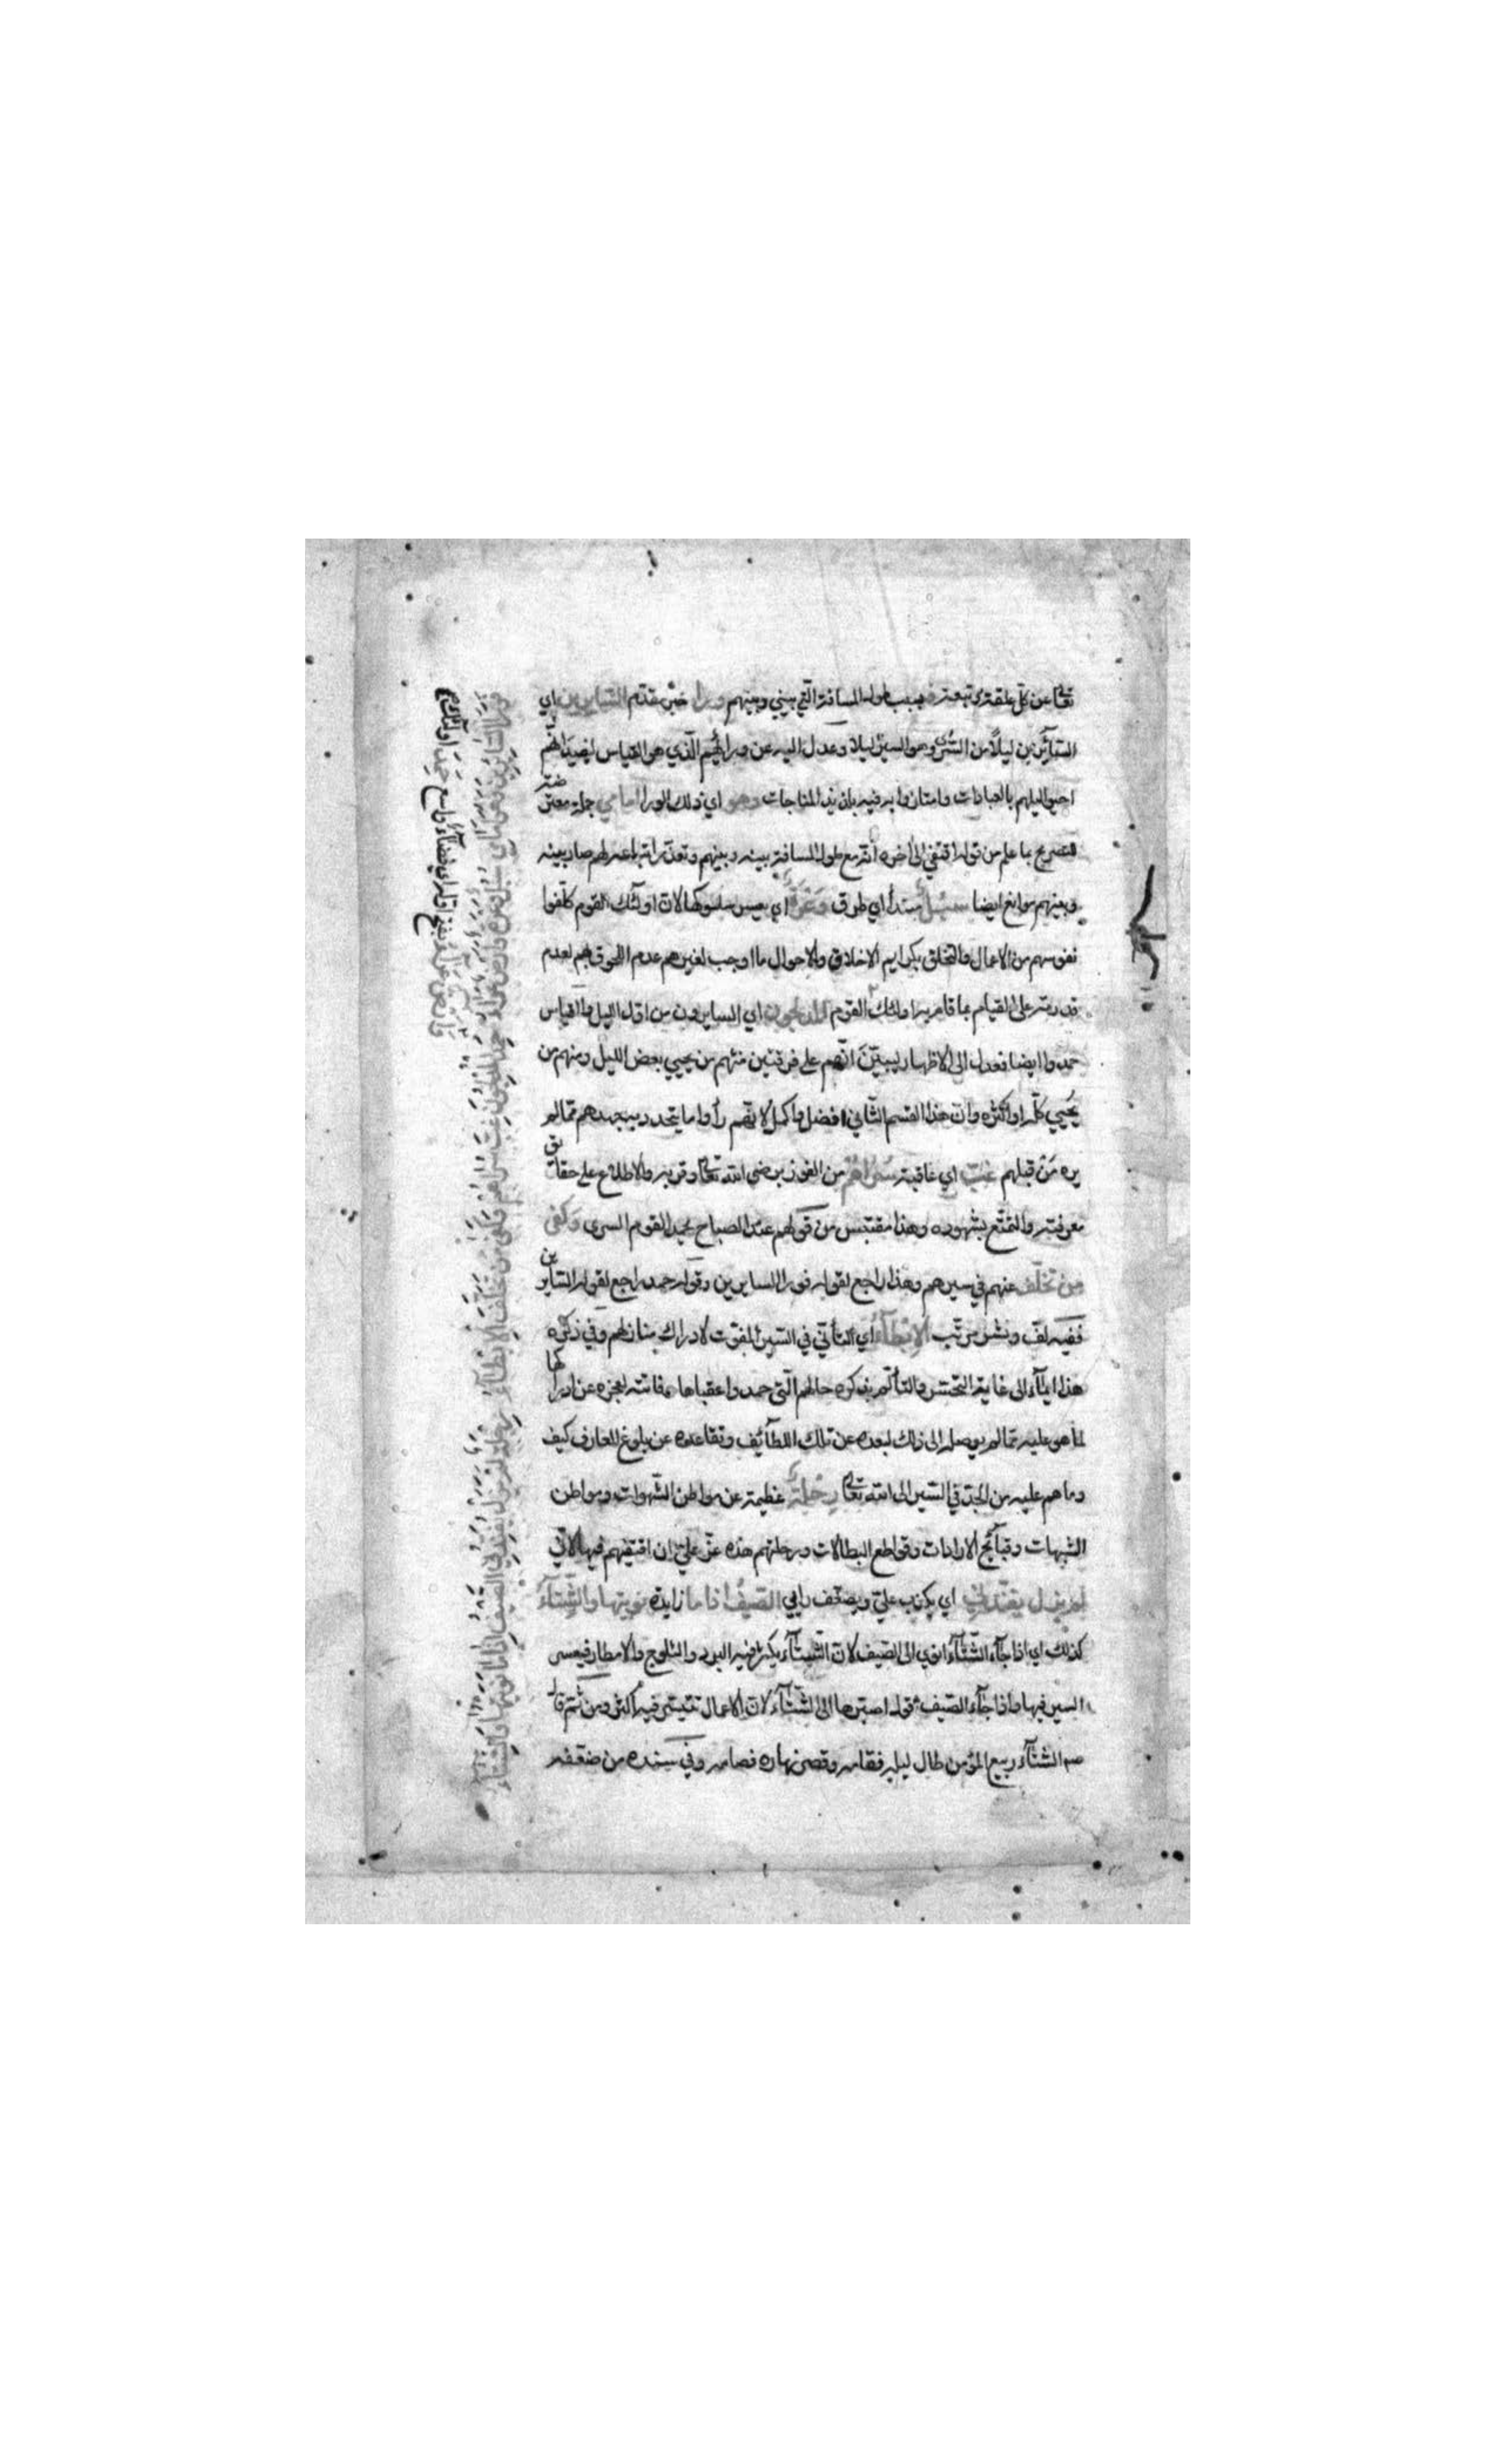 تعالى عن كل علقة وتبعة فبسبب طول المسافة التي بيني وبينهم ورا خبر مقدم السايرين اي
السائرين ليلا من السرى وهو السير ليلا وعدل اليه عن ورائهم الذي هو القياس ليفيد انهم
احيوا ليلهم بالعبادات وامتازوا به فيه بلذيذ المناجات وهو اي ذلك الورا امامي جملة معترضة
للتصريح بما علم من قوله اقتفي الى اخره أنه مع طول المسافة بينه وبينهم وتعذر اتباعه لهم صار بينه
وبينهم موانع ايضا سبل مبتدأ اي طرق وعرة اي يعسر سلوكها لان اولئك القوم كلفوا
نفوسهم من الاعمال والتخلق بكرايم الاخلاق والاحوال ما اوجب لغيرهم عدم اللحوق بهم لعدم
قدرته على القيام بما قام به اولئك القوم المدلجون اي السايرون من اول الليل والقياس
حمدوا ايضا فعدل الى الاظهار ليبين انهم على فرقتين منهم من يحيي بعض الليل ومنهم من
يحيي كله او اكثره وان هذا القسم الثاني افضل واكمل لانهم رأوا ما يتجدد بسبب جهدهم مما لم
يره من قبلهم غب اي عاقبة سراهم من الفوز برضى الله تعالى وقربه والاطلاع على حقائق
معرفته والتمتع بشهوده وهذا مقتبس من قولهم عند الصباح يحمد القوم السرى وكفى
من تخلف عنهم في سيرهم وهذا راجع لقوله فورا السايرين وقوله حمد راجع لقوله السايرين
ففيه لف ونشر مرتب الابطاء اي التأني في السير المفوت لادراك منازلهم وفي ذكره
هذا ايماء الى غاية التحسر والتألم بذكره حالهم التي حمدوا عقباها وفاتته لعجزه عن ادراكها
لما هو عليه مما لم يوصله الى ذلك لبعده عن تلك اللطائف وتقاعده عن بلوغ المعارف كيف
وما هم عليه من الجد في السير الى الله تعالى رحلة عظيمة عن مواطن الشهوات ومواطن
الشبهات وقبائح الارادات وقواطع البطالات وبرحلتهم هذه عز علي ان اقتفيهم فيها لاني
لم يزل يفندني اي يكذب علي ويضعف رايي الصيف اذا ما زايدة نويتها والشتاء
كذلك اي اذا جاء الشتاء انوي الى الصيف لان الشتاء يكثر فيه البرد والثلوج والامطار فيعسر
السير فيها واذا جاء الصيف قوله اصبرها الى الشتاء لان الاعمال تتيسر فيه أكثر ومن ثم قال
صم الشتاء ربيع المؤمن طال ليله فقامه وقصر نهاره فصامه وفي سنده من ضعفه
فورا السائرين وهو امامي سبل وعرة وارض عراء حمد المدلجون غب سراهم وكفى من تخلف الابطاء رحلة لم يزل يفندني الصيف اذا ما نويتها والشتاء